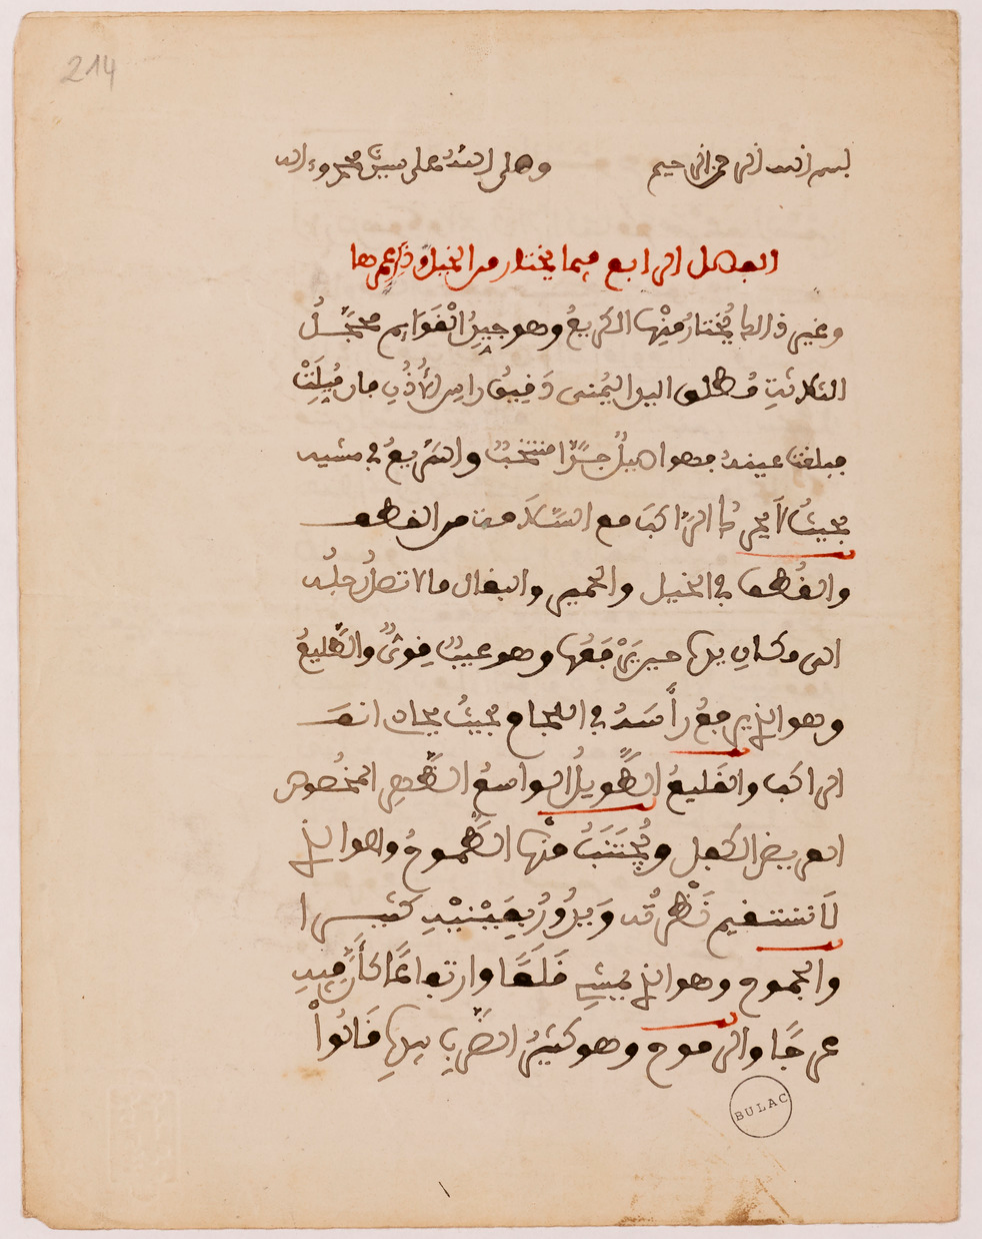 214
بسم الله الرحمن الرحيم وصلى الله على سيدنا محمد وءاله
الفصل الرابع فيما يختار من الخيل وذكر عمرها
وغير ذالك يختار منها الكريع وهو جيد القوايم محجل
الثلاثة مطلق اليد اليمنى دقيق راس الأذن فإن قبلت
جبهته عينه فهو اصيل جدا منتخب والسريع في مشيه
بحيث لا يحرك الراكب مع السلامة من القطف
والقطف في الخيل والحمير والبغال ما لا تصل رجله
الى مكان يدها حين يرفعها وهو عيب قوي والطليع
وهو الذي يرفع رأسه في اللجام بحيث يحاذ انف
الراكب والقليع الطويل الواسع الظهر المخصوص
العريض الكفل ويجتنب منها الطموح وهو الذي
لا تستقيم نظرته ويدور بعينيه كثيرا
والجموح وهو الذي يمشي قلقا وارتفاعا كأن فيه
عرجا والرموح وهو كثير الضرب برجله قالوا
BULAC